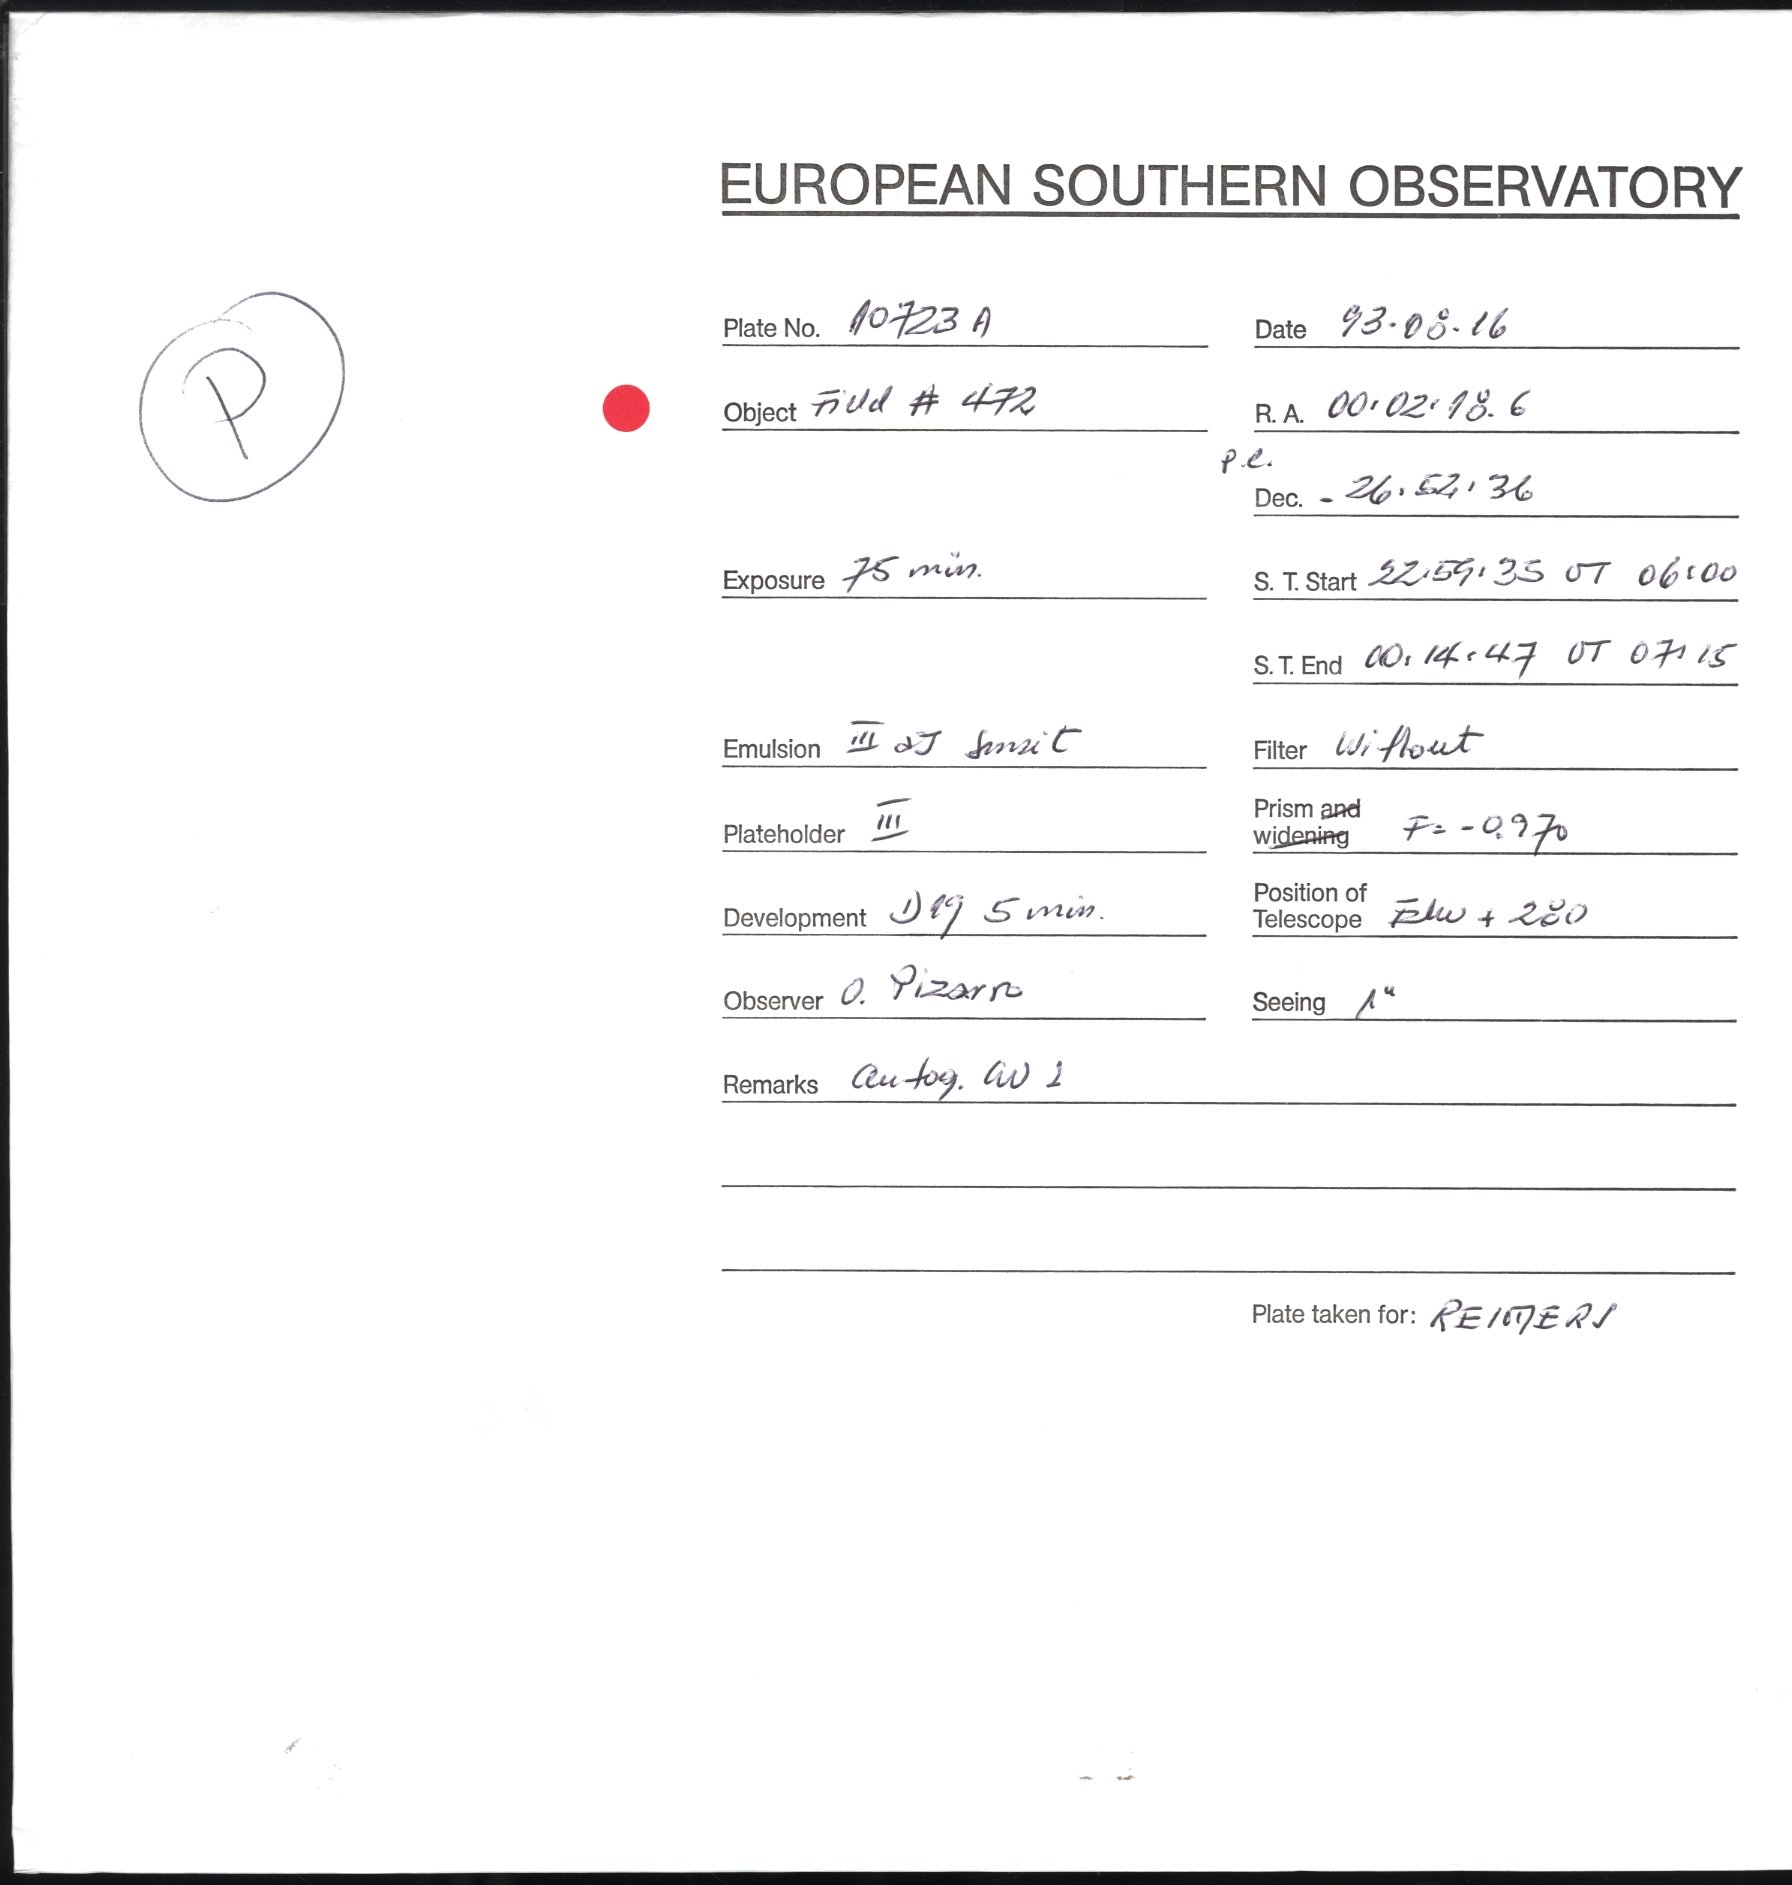 EUROPEAN SOUTHERN OBSERVATORY
P
Plate No. 10723 A
Date 93.08.16
Object Field # 472
R. A. 00:02:18.6
p.e.
Dec. - 26:52:36
Exposure 75 min.
S. T. Start 22:59:35 UT 06:00
S. T. End 00:14:47 UT 07:15
Emulsion III aJ
Filter Without
Plateholder III
Prism and widening F= -0.970
Development D19 5 min.
Position of Telescope + 280
Observer O. Pizarro
Seeing 1"
Remarks autog.
Plate taken for: REIMERS